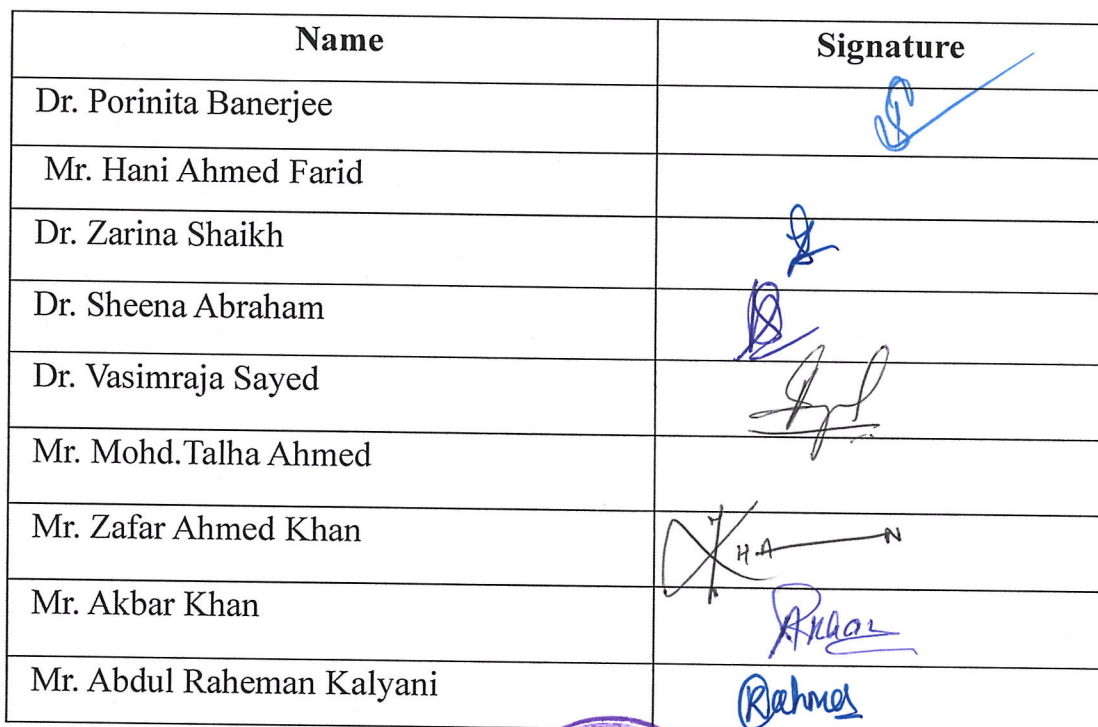 Name Signature
Dr. Porinita Banerjee
Mr. Hani Ahmed Farid
Dr. Zarina Shaikh
Dr. Sheena Abraham
Dr. Vasimraja Sayed
Mr. Mohd.Talha Ahmed
Mr. Zafar Ahmed Khan KHAN
Mr. Akbar Khan
Mr. Abdul Raheman Kalyani